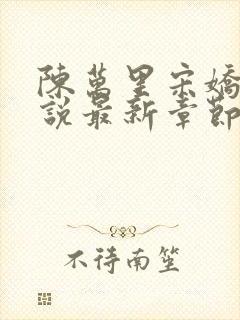 陳萬里宋嬌
說最新章節
不待南笙